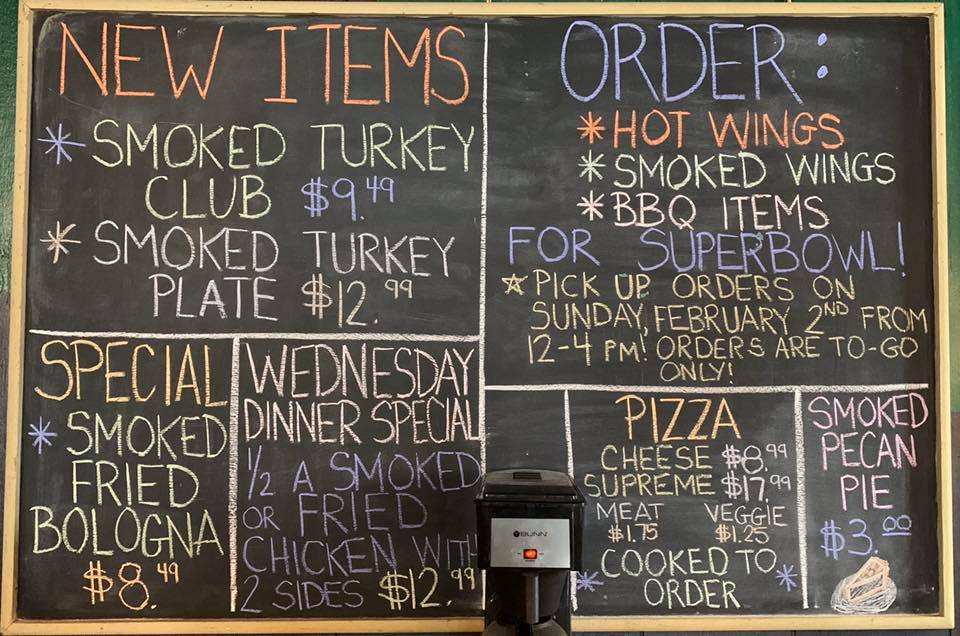 NEW ITEMS
* SMOKED TURKEY
CLUB $9.49
* SMOKED TURKEY
PLATE $12.99
ORDER:
*HOT WINGS
*SMOKED WINGS
*BBQ ITEMS
FOR SUPERBOWL!
☆PICK UP ORDERS ON
SUNDAY, FEBRUARY 2ND FROM
12-4 PM! ORDERS ARE TO-GO
ONLY!
SPECIAL
* SMOKED
FRIED
BOLOGNA
$8.49
WEDNESDAY
DINNER SPECIAL
1/2 A SMOKED
OR FRIED
CHICKEN WITH
2 SIDES $12.99
PIZZA
CHEESE $8.99
SUPREME $17.99
MEAT VEGGIE
$1.75 $1.25
COOKED TO
* ORDER *
SMOKED
PECAN
PIE
$3.00
BUNN